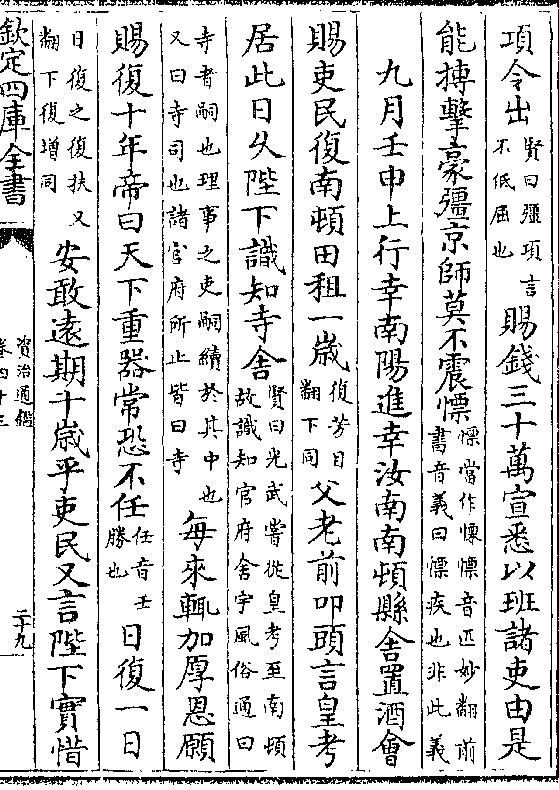 項令出賢曰彊項言不低屈也賜錢三十萬宣悉以班諸吏由是
能搏擊豪彊京師莫不震慓慓當作慄慓音匹妙翻前書音義曰慓疾也非此義
九月壬申上行幸南陽進幸汝南南頓縣舍置酒會
賜吏民復南頓田租一歳復芳目翻下同父老前叩頭言皇考
居此日久陛下識知寺舍賢曰光武嘗從皇考至南頓故識知官府舍宇風俗通曰
寺者嗣也理事之吏嗣續於其中也又曰寺司也諸官府所止皆曰寺每來輒加厚恩願
賜復十年帝曰天下重器常恐不任任音壬勝也日復一日
日復之復扶又翻下復增同安敢遠期十歳乎吏民又言陛下實惜
欽定四庫全書
資治通鑑
卷四十三
二十九